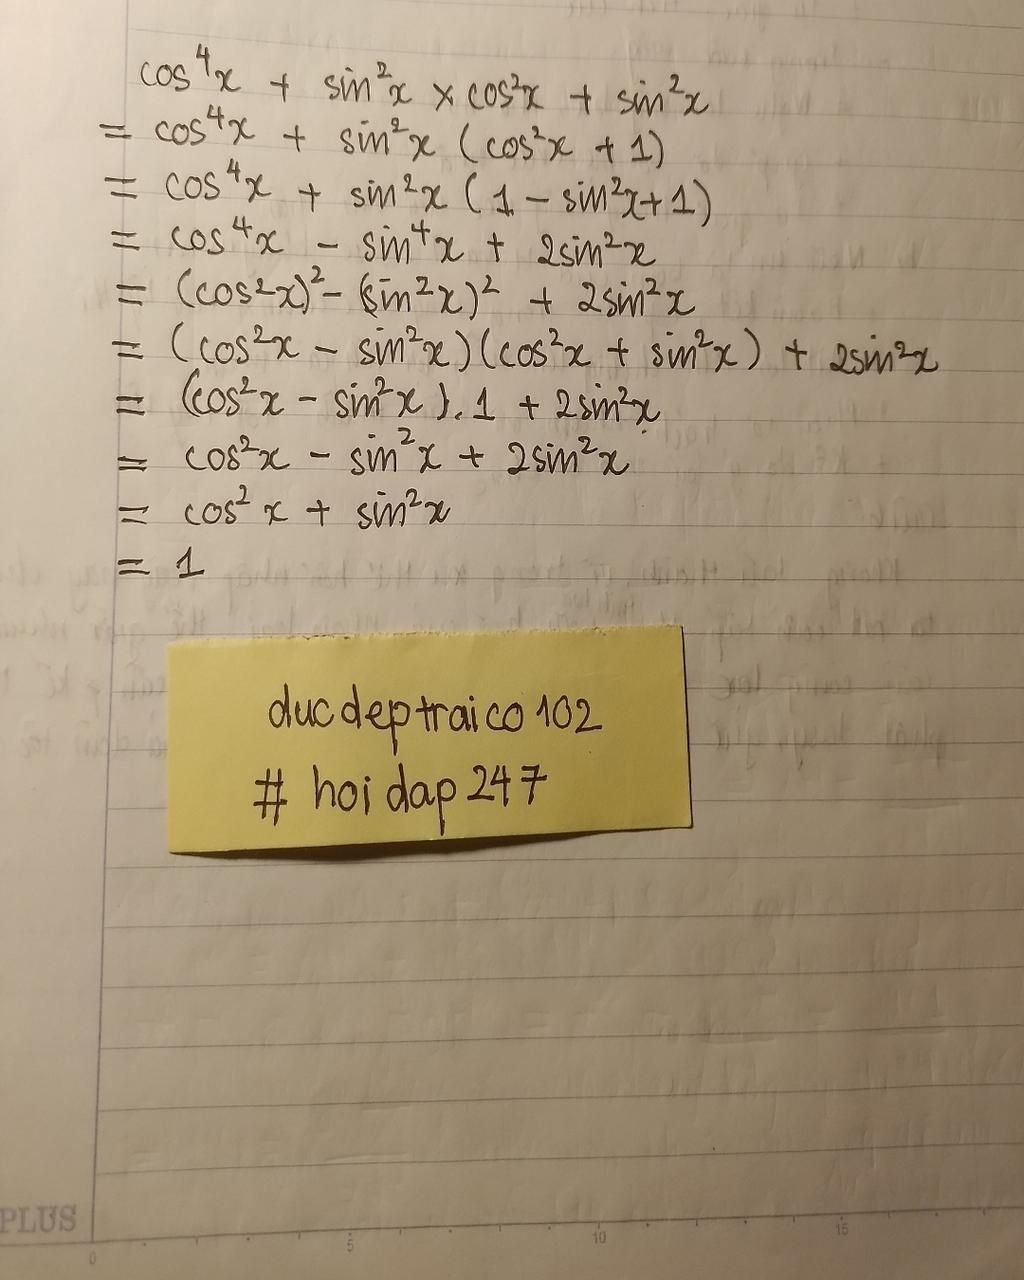 cos⁴x + sin²x × cos²x + sin²x
= cos⁴x + sin²x (cos²x + 1)
= cos⁴x + sin²x (1 - sin²x + 1)
= cos⁴x - sin⁴x + 2sin²x
= (cos²x)² - (sin²x)² + 2sin²x
= (cos²x - sin²x)(cos²x + sin²x) + 2sin²x
= (cos²x - sin²x).1 + 2sin²x
= cos²x - sin²x + 2sin²x
= cos²x + sin²x
= 1
ducdeptraico102
# hoidap247
PLUS
0 5 10 15